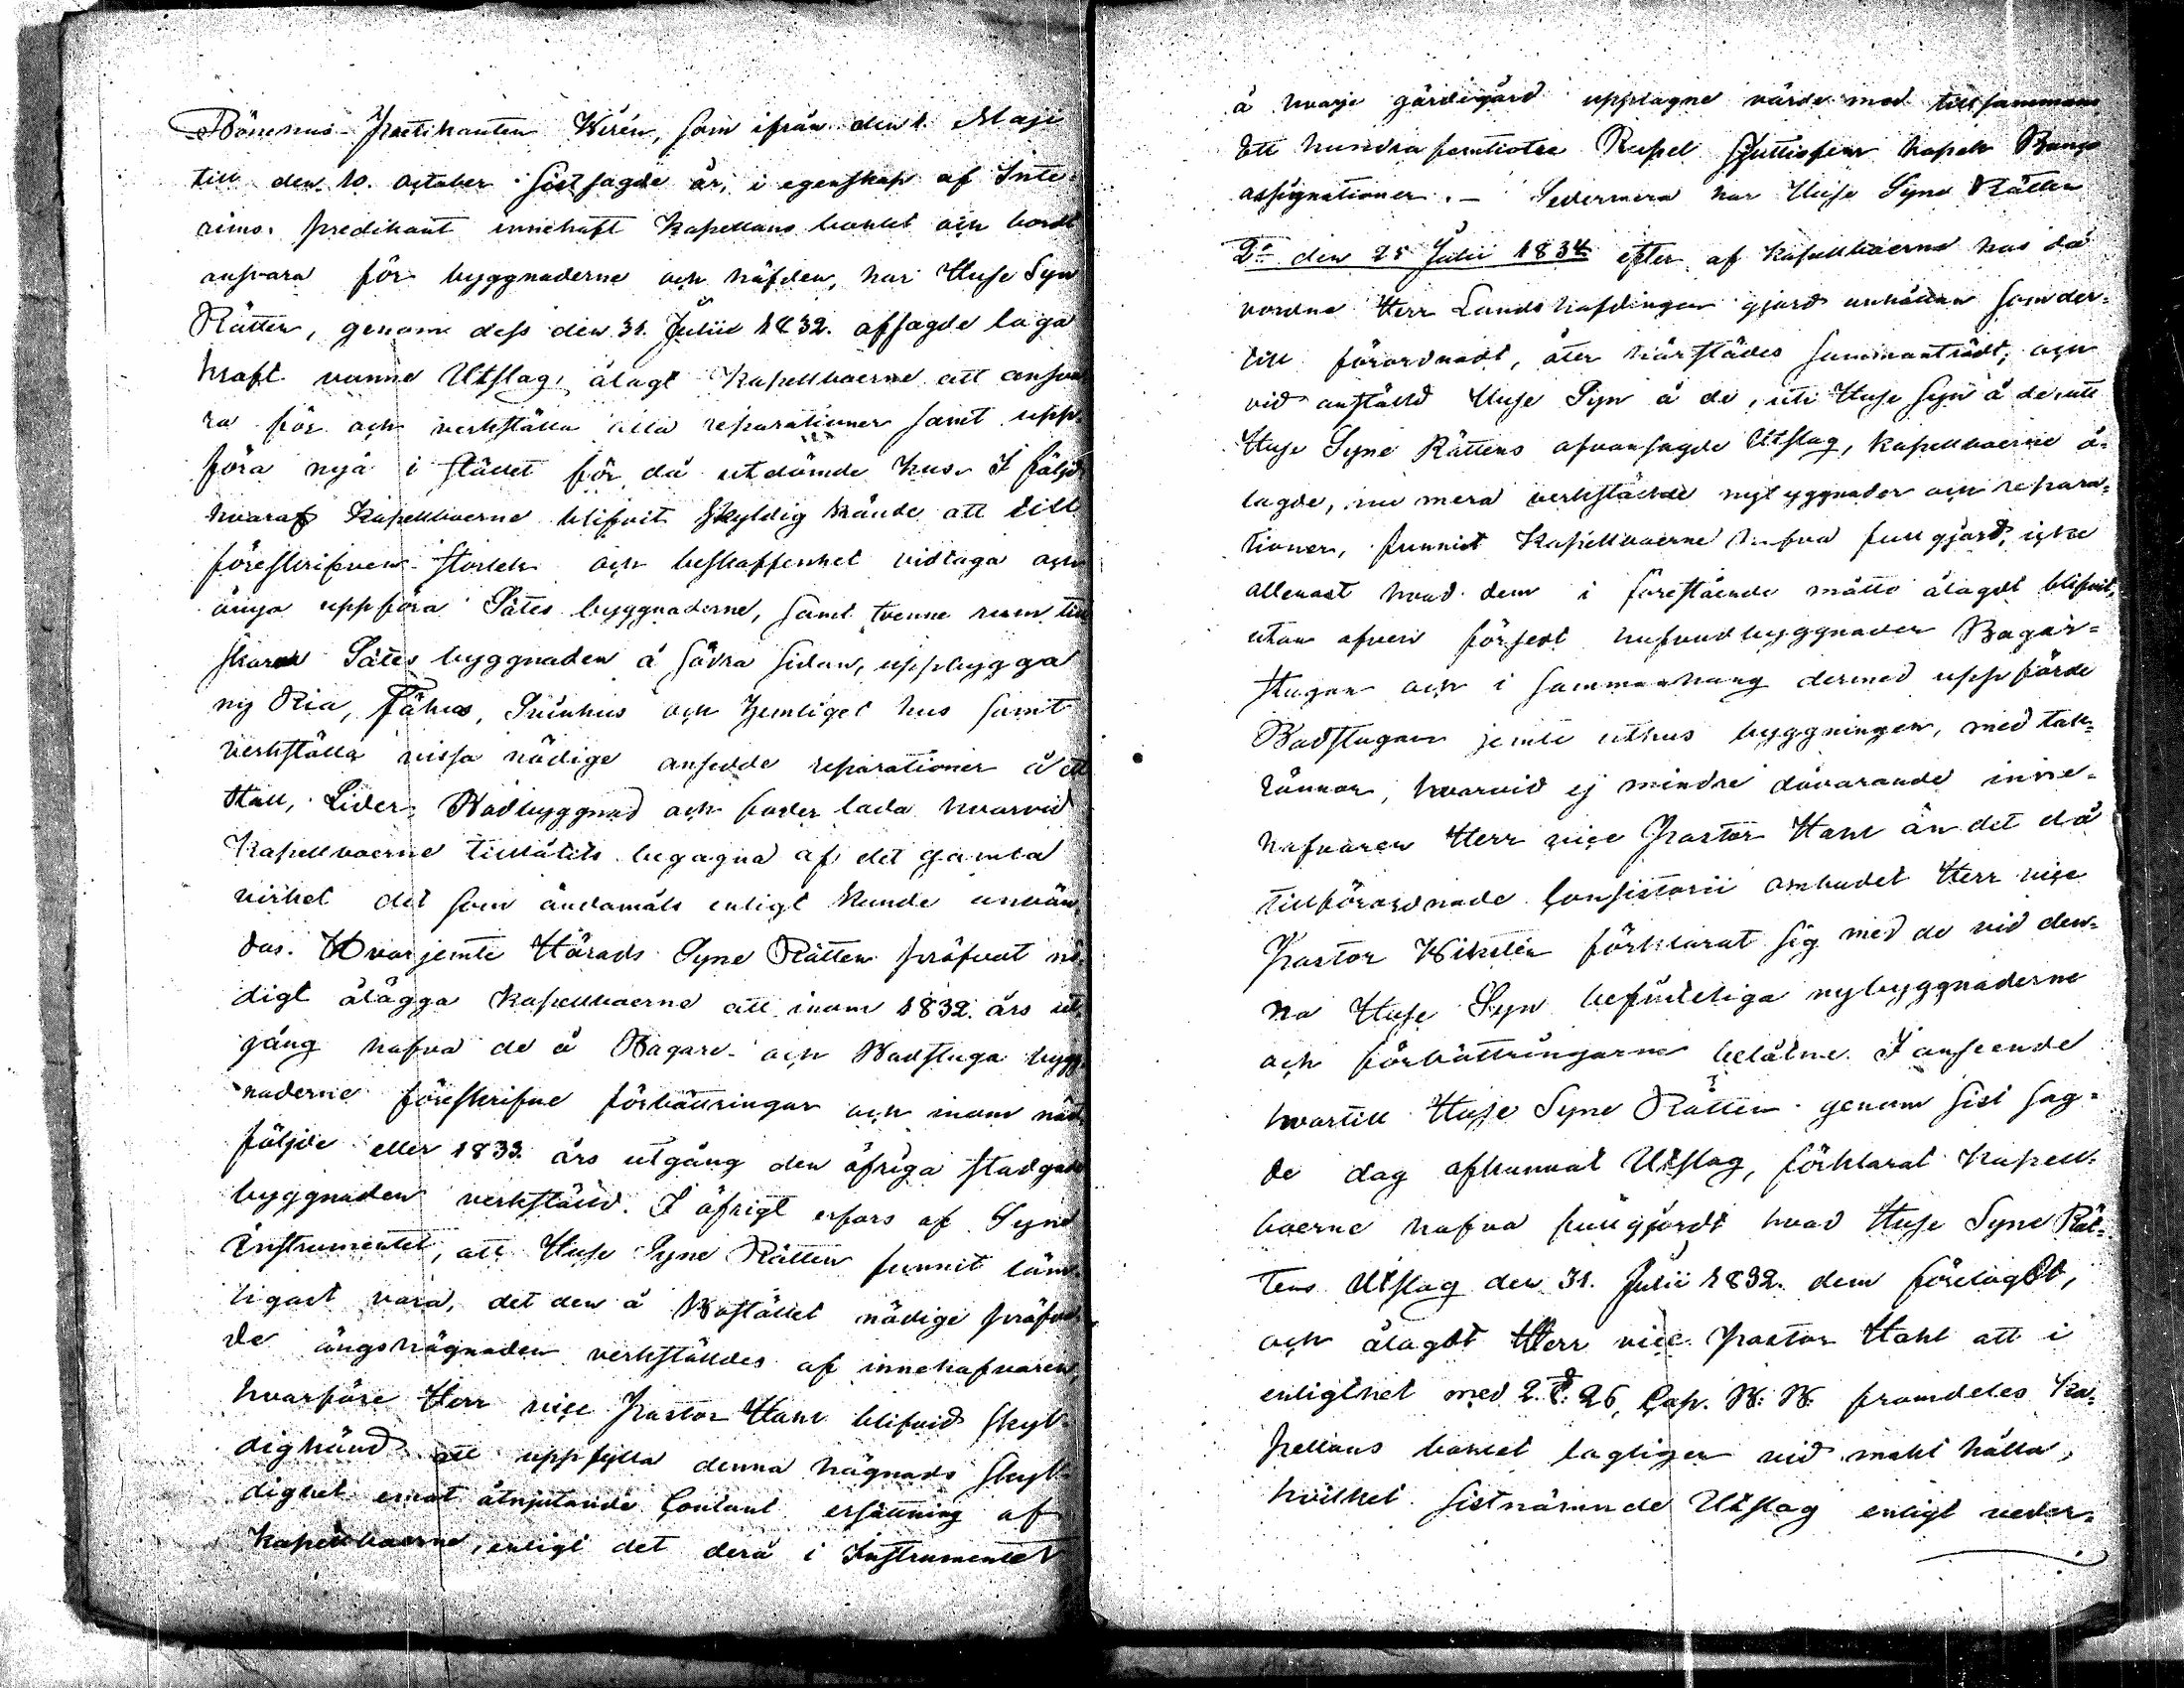 Bönehus-Predikanten Wirén, som ifrån den 1. Maji
till den 10. October sistsagde år, i egenskap af Inte-
rims predikant innehaft Kapellans bohlet och bordt
ansvara för byggnaderne och häfden, har Huse Syn
Rätten, genom dess den 31. Julii 1832. afsagde laga
kraft vunne Utslag, ålagt Kapellboerne att ansva
ra för och verkställa alla reparationer samt upp-
föra nya i stället för då utdömde hus. I följd
hvaraf Kapellboerne blifvit skyldig kände att till
föreskrifven storlek och beskaffenhet vidtaga och
ånyo uppföra Sätes byggnaderne, samt tvenne rum till
Sätes byggnaden å södra sidan, uppbygga
ny Ria, Fähus, Svinhus och Hemliget hus samt
verkställa vissa nödige ansedde reparationer å ett
Stall, Lider, Bodbyggnad och foder lada hvarvid
Kapellboerne tillåtits begagna af det gamla
virket det som ändamåls enligt kunde använ-
das. Hvarjemte Härads Syne Rätten pröfvat nö-
digt ålägga Kapellboerne att inom 1832. års ut-
gång hafva de å Bagare- och Badstuga bygg-
naderne föreskrifne förbättringar och inom näst-
följde eller 1833. års utgång den öfriga stadgade
byggnaden verkställd. I öfrigt erfars af Syne
Instrumentet, att Huse Syne Rätten funnit läm-
ligast vara, det den å Bostället nödige pröfva
de ängshägnaden verkställdes af innehafvaren,
hvarföre Herr vice Pastor Hahl blifvit skyl-
dig känd att uppfylla denna hägnads skyl-
dighet emot åtnjutande Contant ersättning af
Kapellboerne, enligt det derå i Instrumentet
å hvarje gärdsgård upptagne värde med tillsammans
Ett hundra femtiotre Rubel kopek Banco
assignationer. – Sedermera har Huse Syne Rätten
Do den 25 Julii 1834 efter af Kapellboerne hos då
vordne Herr Landshöfdingen gjord anhållan som der-
till förordnadt, åter härstädes sammanträdt, och
vid anställd Huse Syn å de, uti Huse Syn å de, uti
Huse Syne Rättens ofvansagde Utslag, Kapellboerne å-
lagde, nu mera verkställde nybyggnader och repara-
tioner, funnit Kapellboerne hafva fullgjord, icke
allenast hvad dem i förestående måtto ålagdt blifvit,
utan äfven försedt hufvudbyggnaden Bagar-
stugan och i sammanhang dermed uppförde
Badstugan jemte uthus byggningen, med tak-
rännor, hvarvid ej mindre dåvarande inne-
hafvaren Herr vice Pastor Hahl än det då
tillförordnade Consistorii ombudet Herr vice
Pastor Wikelén förklarat sig med de vid den-
na Huse Syn befinteliga nybyggnaderne
och förbättringarne belåtne. I anseende
hvartill Huse Syne Rätten genom sist sag-
de dag afkunnat Utslag, förklarat Kapell-
boerne hafva fullgjordt hvad Huse Syne Rät-
tens Utslag den 31. Julii 1832. dem förelagdt,
och ålagdt Herr vice Pastor Hahl att i
enlighet med 2. §: 26, Cap. B: B: framdeles Ka-
pellans bohlet lagligen vid makt hålla,
hvilket sistnämnde Utslag enligt veder-